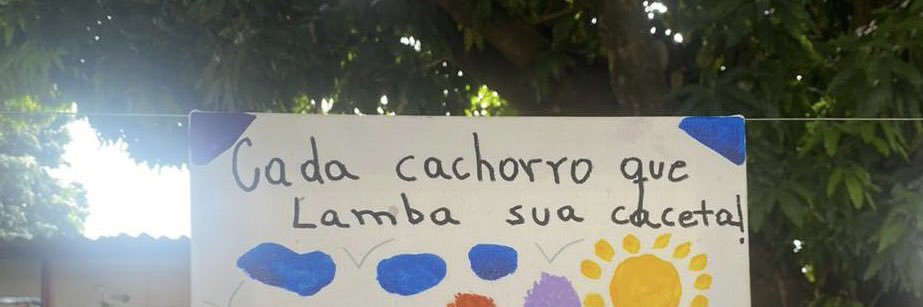 Cada cachorro que
Lamba sua caceta!